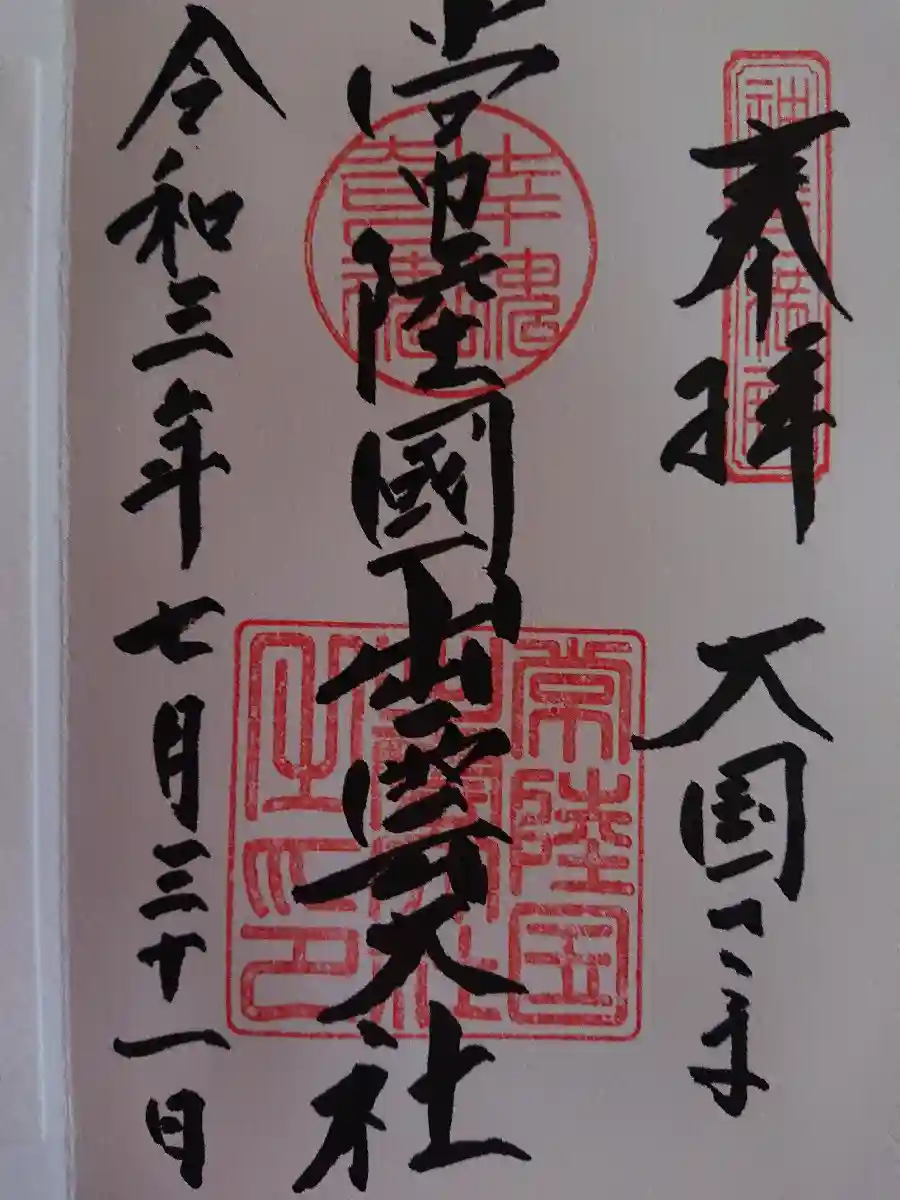 奉拝 大国主
常陸國出雲大社
令和三年七月三十一日
幸魂
奇魂
常陸国
出雲大社
之印